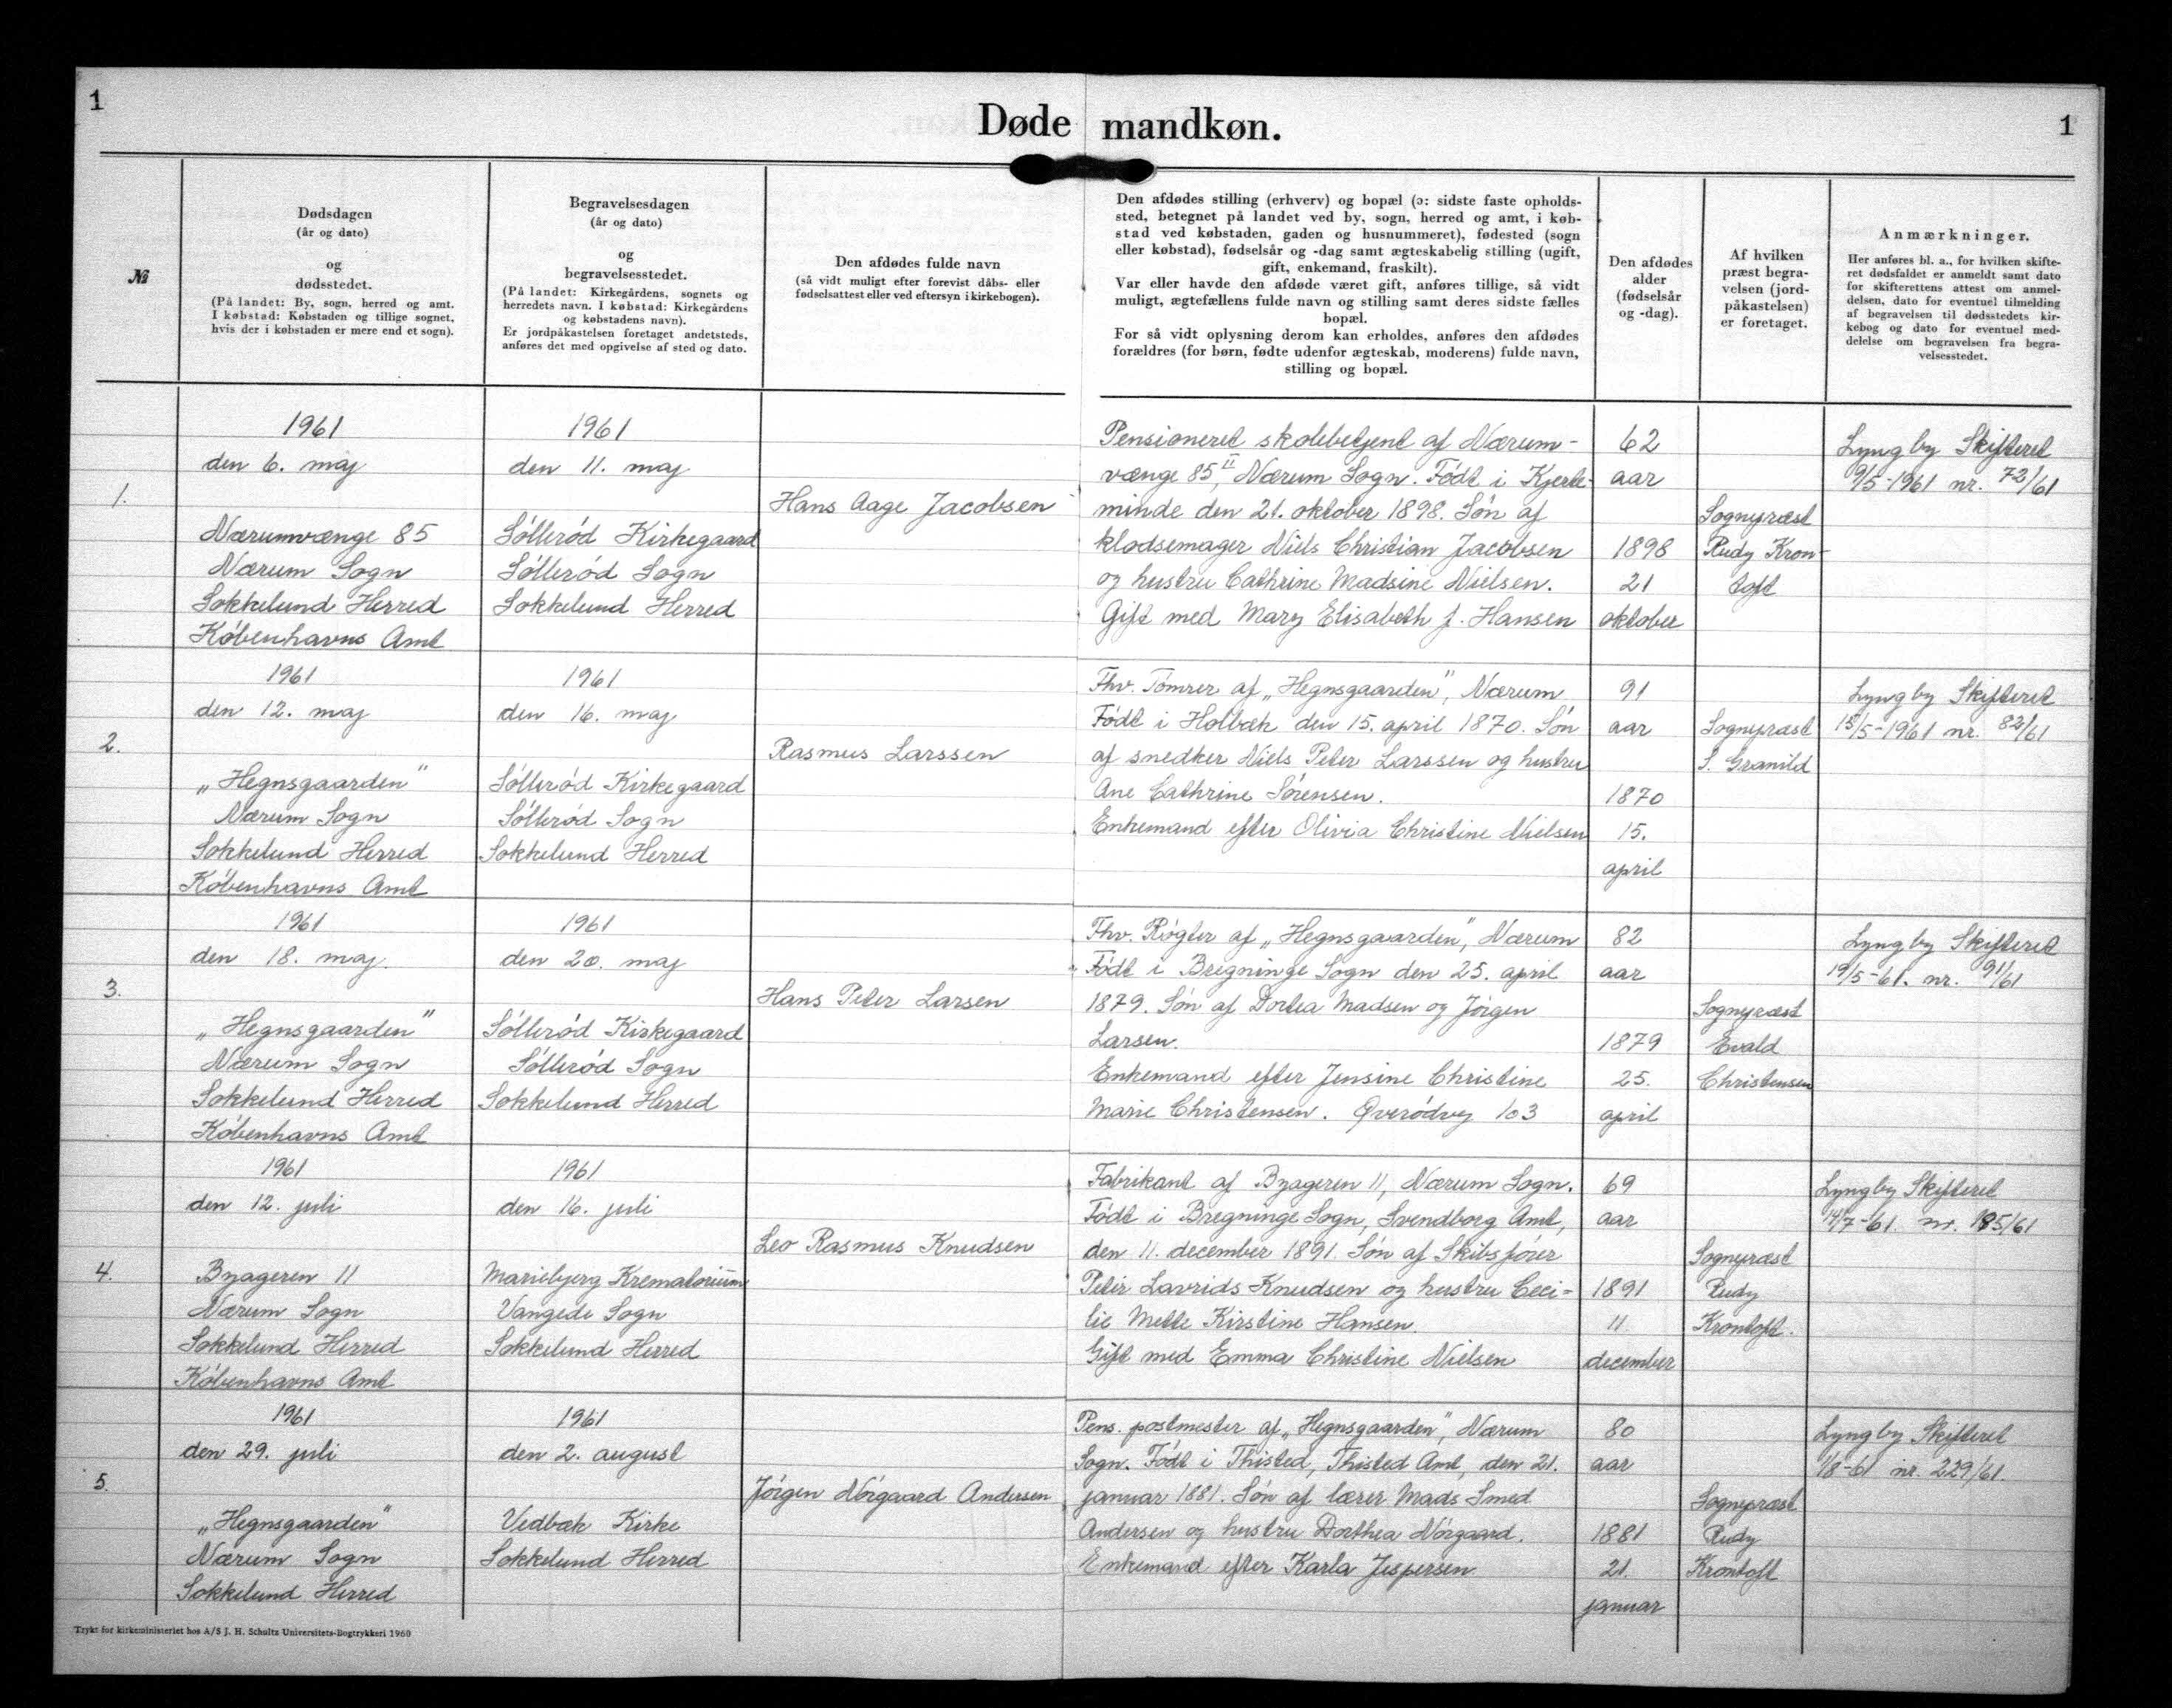 1
Døde mandkøn.
1
№
Dødsdagen
(år og dato)
og
dødsstedet.
(På landet: By, sogn, herred og amt.
I købstad: Købstaden og tillige sognet,
hvis der i købstaden er mere end et sogn).
Begravelsesdagen
(år og dato)
og
begravelsesstedet.
(På landet: Kirkegårdens, sognets og
herredets navn. I købstad: Kirkegårdens
og købstadens navn).
Er jordpåkastelsen foretaget andetsteds,
anføres det med opgivelse af sted og dato.
Den afdødes fulde navn
(så vidt muligt efter forevist dåbs- eller
fødselsattest eller ved eftersyn i kirkebogen).
Den afdødes stilling (erhverv) og bopæl (ɔ: sidste faste opholds-
sted, betegnet på landet ved by, sogn, herred og amt, i køb-
stad ved købstaden, gaden og husnummeret), fødested (sogn
eller købstad), fødselsår og -dag samt ægteskabelig stilling (ugift,
gift, enkemand, fraskilt).
Var eller havde den afdøde været gift, anføres tillige, så vidt
muligt, ægtefællens fulde navn og stilling samt deres sidste fælles
bopæl.
For så vidt oplysning derom kan erholdes, anføres den afdødes
forældres (for børn, fødte udenfor ægteskab, moderens) fulde navn,
stilling og bopæl.
Den afdødes
alder
(fødselsår
og -dag).
Af hvilken
præst begra-
velsen (jord-
påkastelsen)
er foretaget.
Anmærkninger.
Her anføres bl. a., for hvilken skifte-
ret dødsfaldet er anmeldt samt dato
for skifterettens attest om anmel-
delsen, dato for eventuel tilmelding
af begravelsen til dødsstedets kir-
kebog og dato for eventuel med-
delelse om begravelsen fra begra-
velsesstedet.
1.
1961
den 6. maj
Nærumvænge 85
Nærum Sogn
Sokkelund Herred
Københavns Amt
1961
den 11. maj
Søllerød Kirkegaard
Søllerød Sogn
Sokkelund Herred
Hans Aage Jacobsen
Pensioneret skolebetjent af Nærum-
vænge 85 II, Nærum Sogn. Født i Kjerte-
minde den 21. oktober 1898. Søn af
klodsemager Niels Christian Jacobsen
og hustru Cathrine Madsine Nielsen.
Gift med Mary Elisabeth f. Hansen
62
aar
1898
21
oktober
Sognepræst
Rudy Kron-
toft
Lyngby Skifteret
9/5-1961 nr. 72/61
2.
1961
den 12. maj
„Hegnsgaarden"
Nærum Sogn
Sokkelund Herred
Københavns Amt
1961
den 16. maj
Søllerød Kirkegaard
Søllerød Sogn
Sokkelund Herred
Rasmus Larssen
Fhv. Tømrer af „Hegnsgaarden", Nærum
Født i Holbæk den 15. april 1870. Søn
af snedker Niels Peter Larssen og hustru
Ane Cathrine Sørensen.
Enkemand efter Olivia Christine Nielsen
91
aar
1870
15.
april
Sognepræst
S. Granild
Lyngby Skifteret
15/5-1961 nr. 82/61
3.
1961
den 18. maj.
„Hegnsgaarden"
Nærum Sogn
Sokkelund Herred
Københavns Amt
1961
den 20. maj
Søllerød Kirkegaard
Søllerød Sogn
Sokkelund Herred
Hans Peter Larsen
Fhv. Røgter af „Hegnsgaarden", Nærum
Født i Bregninge Sogn den 25. april
1879. Søn af Dortea Madsen og Jørgen
Larsen.
Enkemand efter Jensine Christine
Marie Christensen. Øverødvej 103
82
aar
1879
25.
april
Sognepræst
Evald
Christensen
Lyngby Skifteret
19/5-61. nr. 91/61
4.
1961
den 12. juli
Byageren 11
Nærum Sogn
Sokkelund Herred
Københavns Amt
1961
den 16. juli
Mariebjerg Krematorium
Vangede Sogn
Sokkelund Herred
Leo Rasmus Knudsen
Fabrikant af Byageren 11, Nærum Sogn.
Født i Bregninge Sogn, Svendborg Amt,
den 11. december 1891. Søn af Skibsfører
Peter Lavrids Knudsen og hustru Ceci-
lie Mette Kirstine Hansen.
Gift med Emma Christine Nielsen
69
aar
1891
11.
december
Sognepræst
Rudy
Krontoft.
Lyngby Skifteret
14/7-61. nr. 185/61
5.
1961
den 29. juli
„Hegnsgaarden"
Nærum Sogn
Sokkelund Herred
1961
den 2. august
Vedbæk Kirke
Sokkelund Herred
Jørgen Nørgaard Andersen
Pens. postmester af „Hegnsgaarden", Nærum
Sogn. Født i Thisted, Thisted Amt, den 21.
januar 1881. Søn af lærer Mads Smed
Andersen og hustru Dorthea Nørgaard.
Enkemand efter Karla Jespersen
80
aar
1881
21.
januar
Sognepræst
Rudy
Krontoft
Lyngby Skifteret
1/8-61 nr. 229/61.
Trykt for kirkeministeriet hos A/S J. H. Schultz Universitets-Bogtrykkeri 1960